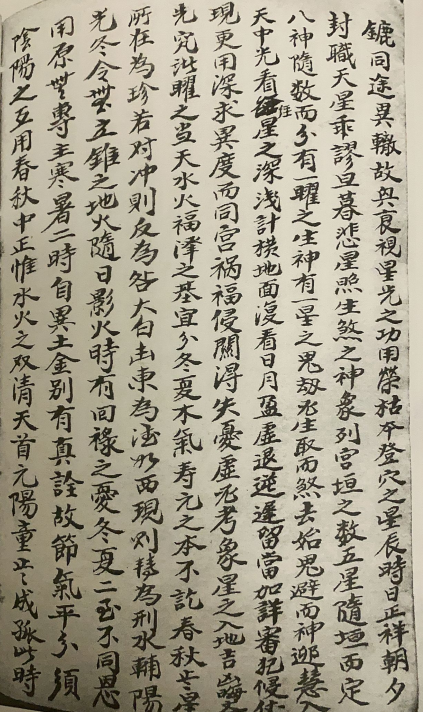 鏕同途異轍故與衰視星光之功用榮枯本登穴之星辰時日正祥朝夕
封職天星乖謬旦暮悲星照生煞之神象列宮垣之数五星隨垣而定
八神隨数而分有一曜之生神有一星之鬼劫必生取而煞去始鬼避而神迎慧入
天中先看經星住之深淺計横地面復看日月盈虚退逆遲留當加詳審犯侵
現更用深求異度而同宫禍福侵關得失憂虚必考象星之入地吉
先究此曜之当天水火福澤之基宜分冬夏木氣寿元之本不訖春秋土星
所在為珍若对冲則反為咎太白出東為德必西現則轉為刑水輔陽
光冬令無立錐之地火隨日影火時有回禄之憂冬夏二至不同恩
用原無專主寒暑二時自異土金别有真詮故節氣平分須
陰陽之互用春秋中正惟水火之双清天首元陽童止之成孤此時